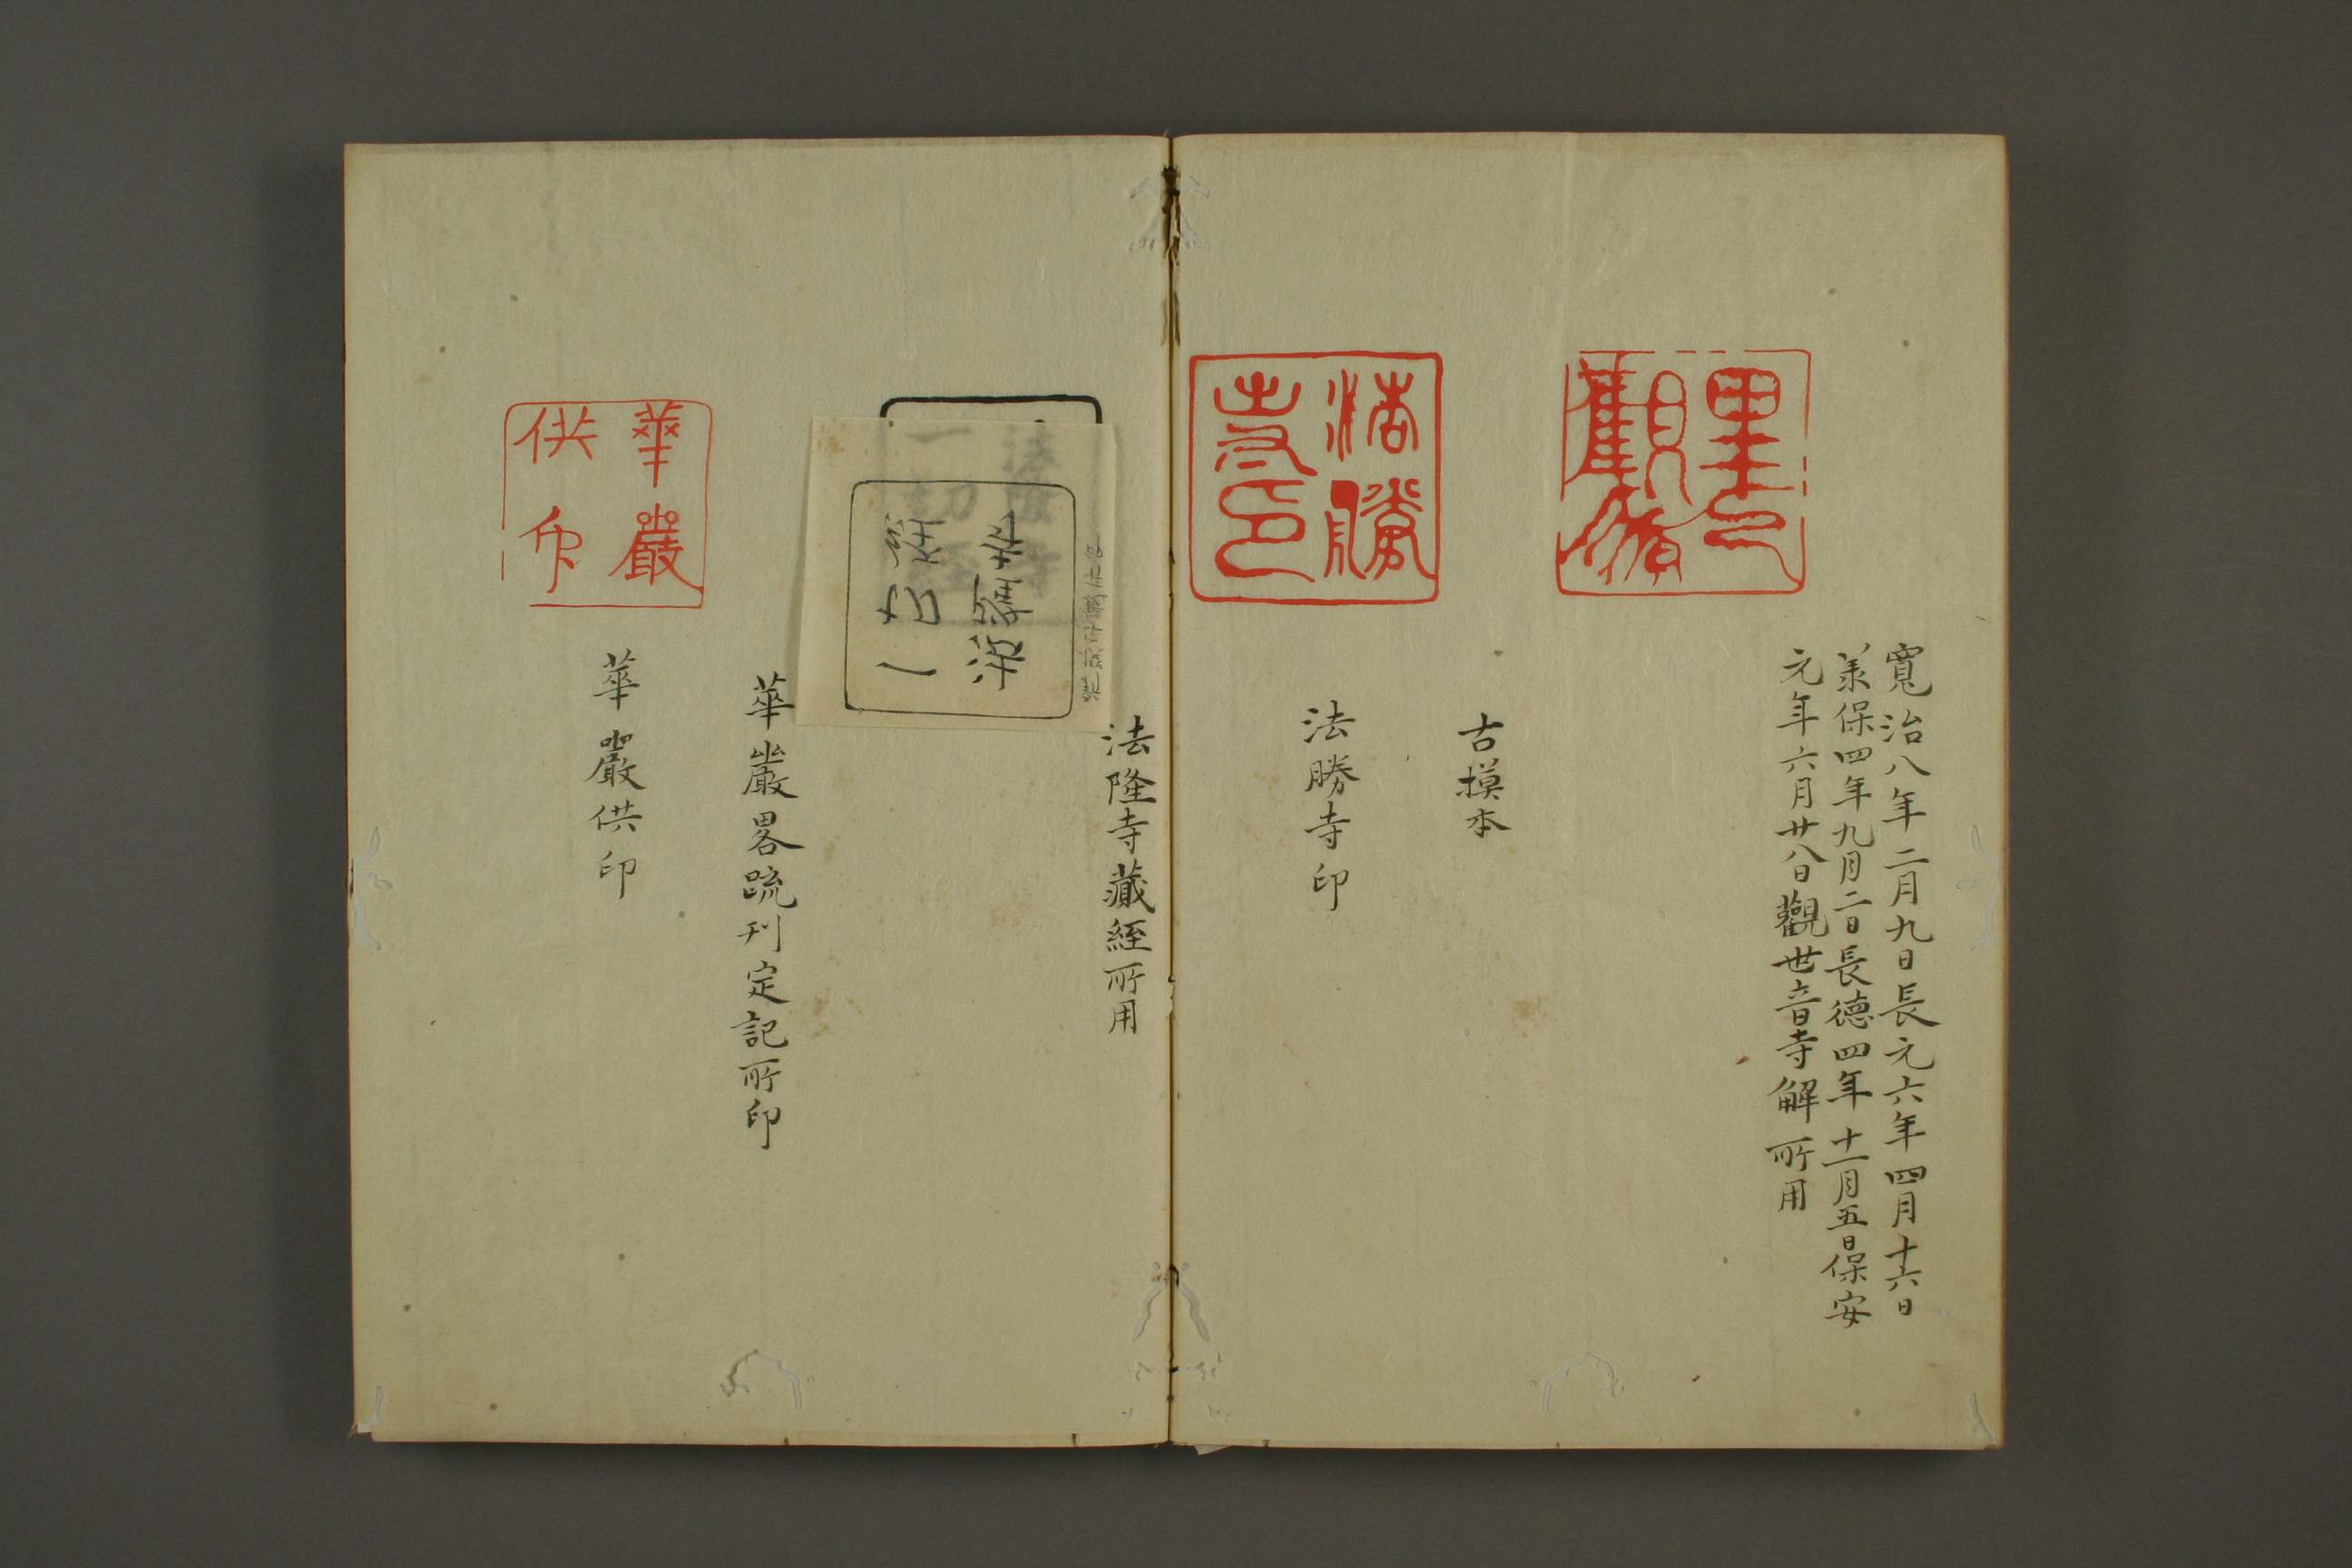 寛治八年二月九日長元六年四月十六日
承保四年九月二日長德四年十一月五日保安
元年六月廿八日觀世音寺解所用
古摸本
法勝
寺印
法勝寺印
法隆寺藏經所用
法隆寺
一切經
華嚴畧疏刊定記所印
華嚴
供印
華嚴供印